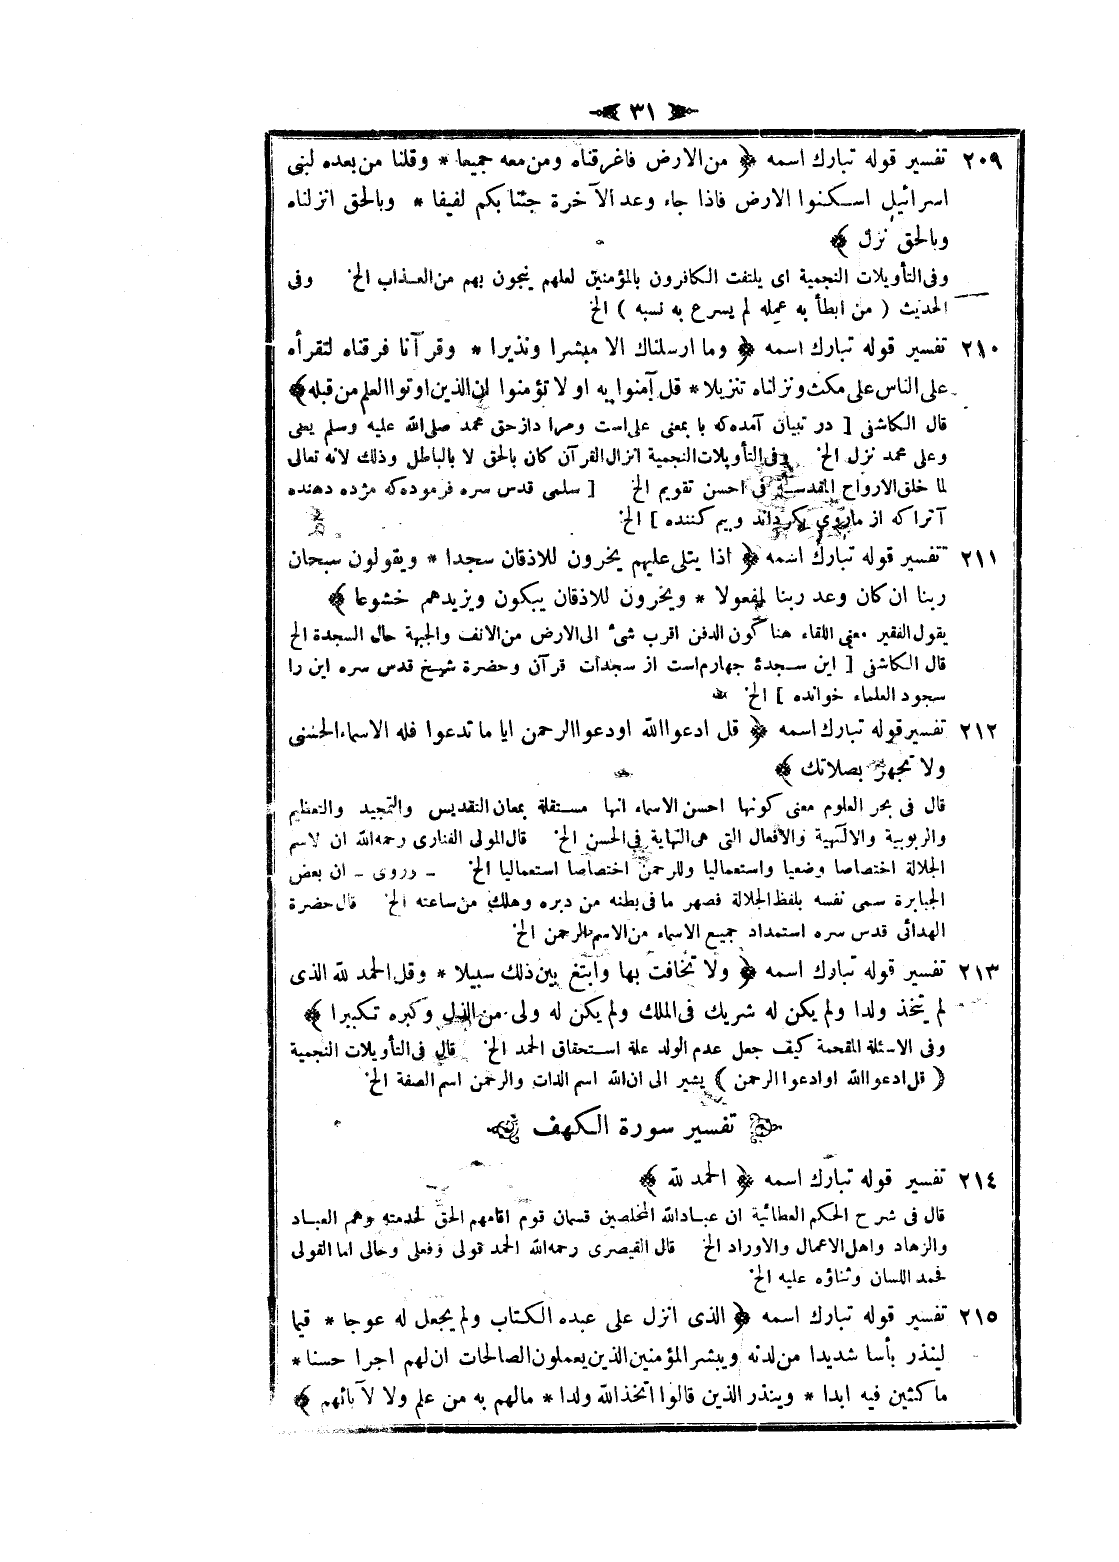 ٣١
٢٠٩ تفسير قوله تبارك اسمه ﴿ من الارض فاغرقناه ومن معه جميعا * وقلنا من بعده لبنى
اسرائيل اسكنوا الارض فاذا جاء وعد الآخرة جئنا بكم لفيفا * وبالحق انزلناه
وبالحق نزل ﴾
وفى التأويلات النجمية اى يلتفت الكافرون بالمؤمنين لعلهم ينجون بهم من العذاب الخ وفى
الحديث ( من ابطأ به عمله لم يسرع به نسبه ) الخ
٢١٠ تفسير قوله تبارك اسمه ﴿ وما ارسلناك الا مبشرا ونذيرا * وقرآنا فرقناه لتقرأه
على الناس على مكث ونزلناه تنزيلا * قل آمنوا به او لا تؤمنوا ان الذين اوتوا العلم من قبله ﴾
قال الكاشفى [ در تبيان آمده كه با بمعنى على است ومراد ازحق محمد صلى الله عليه وسلم يعنى
وعلى محمد نزل الخ وفى التأويلات النجمية انزال القرآن كان بالحق لا بالباطل وذلك لانه تعالى
لما خلق الارواح المقدسة فى احسن تقويم الخ [ سلمى قدس سره فرموده كه مژده دهنده
آنرا كه از ما روى بگرداند وبيم كننده ] الخ
٢١١ تفسير قوله تبارك اسمه ﴿ اذا يتلى عليهم يخرون للاذقان سجدا * ويقولون سبحان
ربنا ان كان وعد ربنا لمفعولا * ويخرون للاذقان يبكون ويزيدهم خشوعا ﴾
يقول الفقير معنى اللقاء هنا كون الدفن اقرب شئ الى الارض من الانف والجبهة حال السجدة الخ
قال الكاشفى [ اين سجدۀ چهارم است از سجدات قرآن وحضرة شيخ قدس سره اين را
سجود العلماء خوانده ] الخ
٢١٢ تفسير قوله تبارك اسمه ﴿ قل ادعوا الله او ادعوا الرحمن ايا ما تدعوا فله الاسماء الحسنى
ولا تجهر بصلاتك ﴾
قال فى بحر العلوم معنى كونها احسن الاسماء انها مستقلة بمعان التقديس والتمجيد والتعظيم
والربوبية والالهية والافعال التى هى النهاية فى الحسن الخ قال المولى الفنارى رحمه الله ان لاسم
الجلالة اختصاصا وضعيا واستعماليا وللرحمن اختصاصا استعماليا الخ ـ وروى ـ ان بعض
الجبابرة سمى نفسه بلفظ الجلالة فصهر ما فى بطنه من دبره وهلك من ساعته الخ قال حضرة
الهدائى قدس سره استمداد جميع الاسماء من الاسم الرحمن الخ
٢١٣ تفسير قوله تبارك اسمه ﴿ ولا تخافت بها وابتغ بين ذلك سبيلا * وقل الحمد لله الذى
لم يتخذ ولدا ولم يكن له شريك فى الملك ولم يكن له ولى من الذل وكبره تكبيرا ﴾
وفى الاسئلة المقحمة كيف جعل عدم الولد علة استحقاق الحمد الخ قال فى التأويلات النجمية
( قل ادعوا الله او ادعوا الرحمن ) يشير الى ان الله اسم الذات والرحمن اسم الصفة الخ
تفسير سورة الكهف
٢١٤ تفسير قوله تبارك اسمه ﴿ الحمد لله ﴾
قال فى شرح الحكم العطائية ان عباد الله المخلصين قسمان قوم اقامهم الحق لخدمته وهم العباد
والزهاد واهل الاعمال والاوراد الخ قال القيصرى رحمه الله الحمد قولى وفعلى وحالى اما القولى
فحمد اللسان وثناؤه عليه الخ
٢١٥ تفسير قوله تبارك اسمه ﴿ الذى انزل على عبده الكتاب ولم يجعل له عوجا * قيما
لينذر بأسا شديدا من لدنه ويبشر المؤمنين الذين يعملون الصالحات ان لهم اجرا حسنا *
ماكثين فيه ابدا * وينذر الذين قالوا اتخذ الله ولدا * مالهم به من علم ولا لآبائهم ﴾